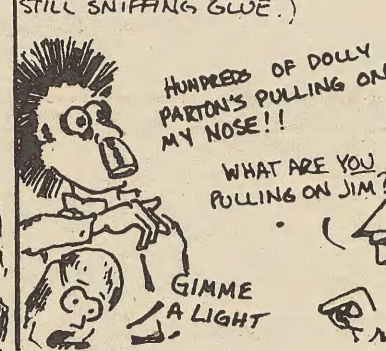 STILL SNIFFING GLUE.)
HUNDREDS OF DOLLY
PARTON'S PULLING ON
MY NOSE!!
WHAT ARE YOU
PULLING ON JIM?
GIMME
A LIGHT